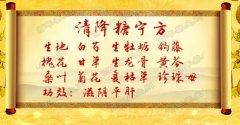 清降糖宁方
生地 白芍 生牡蛎 钩藤
槐花 甘草 生龙骨 黄芩
桑叶 菊花 夏枯草 珍珠母
功效：滋阴平肝